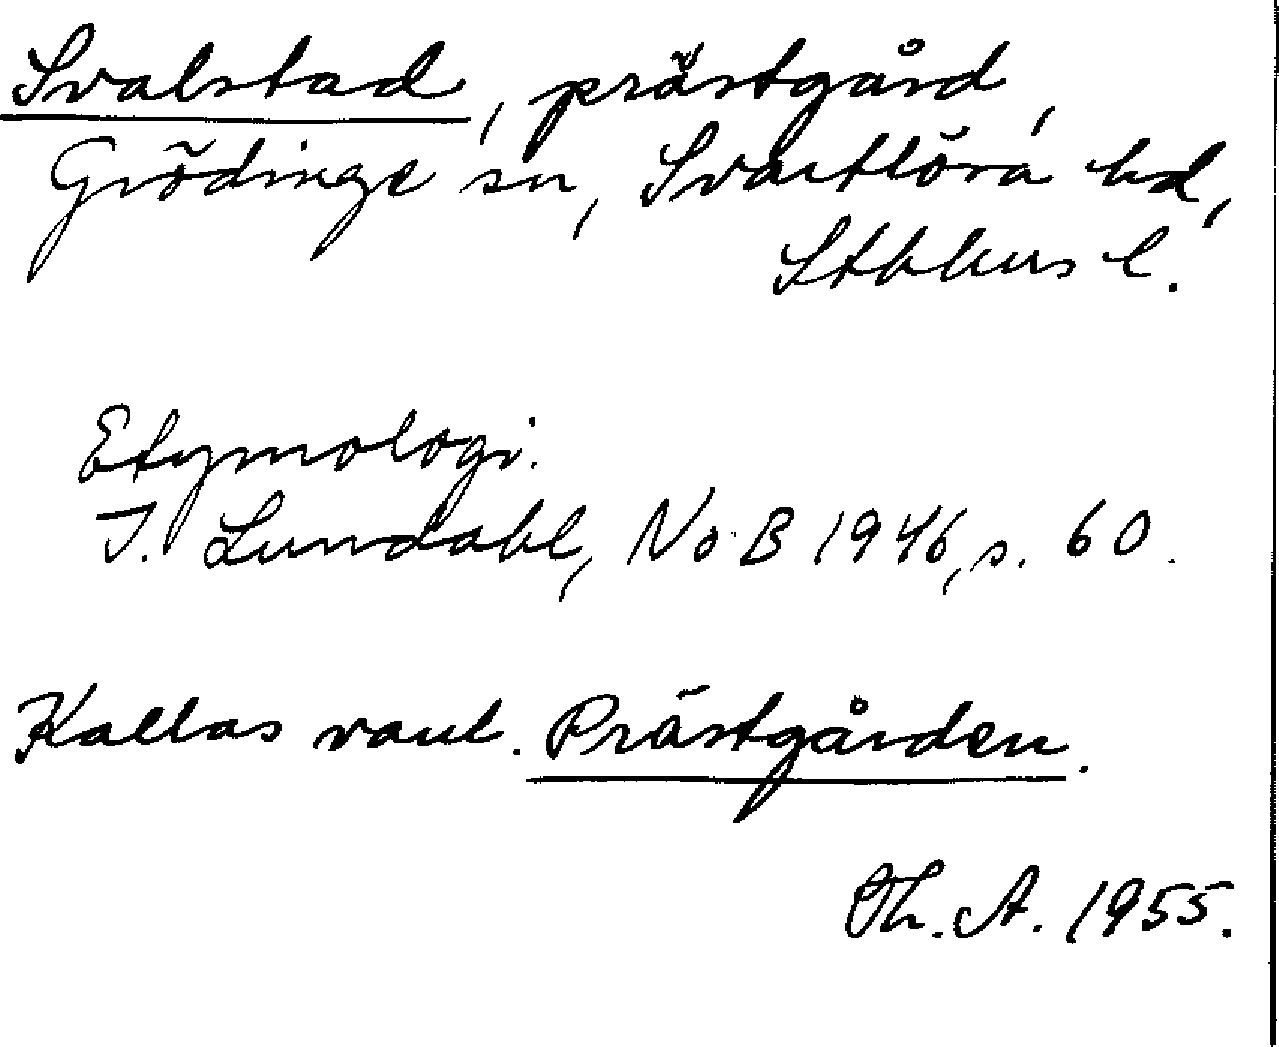 Svalstad, prästgård,
Grödinge sn, Svartlösa hd,
Sthlms l.
Etymologi.
I. Lundahl, NoB 1946, s. 60.
Kallas vanl. Prästgården.
Th. A. 1955.